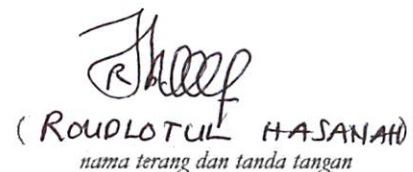 (ROUDLOTUL HASANAH)
nama terang dan tanda tangan